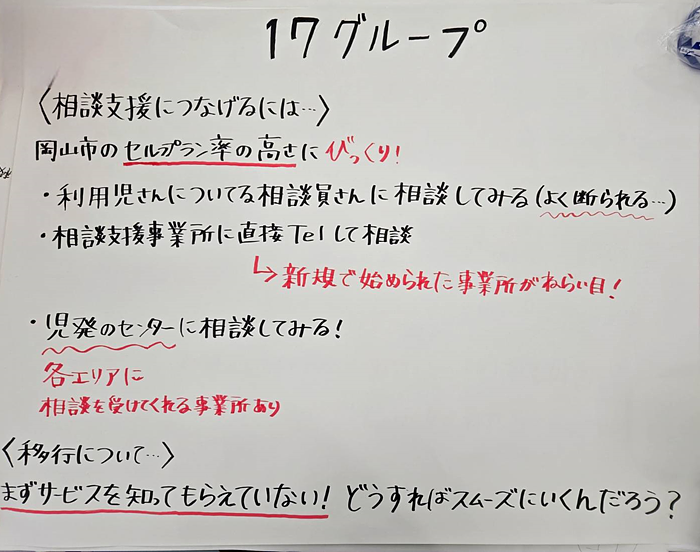 17グループ
〈相談支援につなげるには…〉
岡山市のセルプラン率の高さにびっくり!
・利用児さんについてる相談員さんに相談してみる(よく断られる…)
・相談支援事業所に直接Telして相談
↳新規で始められた事業所がねらい目!
・児発のセンターに相談してみる!
各エリアに
相談を受けてくれる事業所あり
〈移行について…〉
まずサービスを知ってもらえていない! どうすればスムーズにいくんだろう?